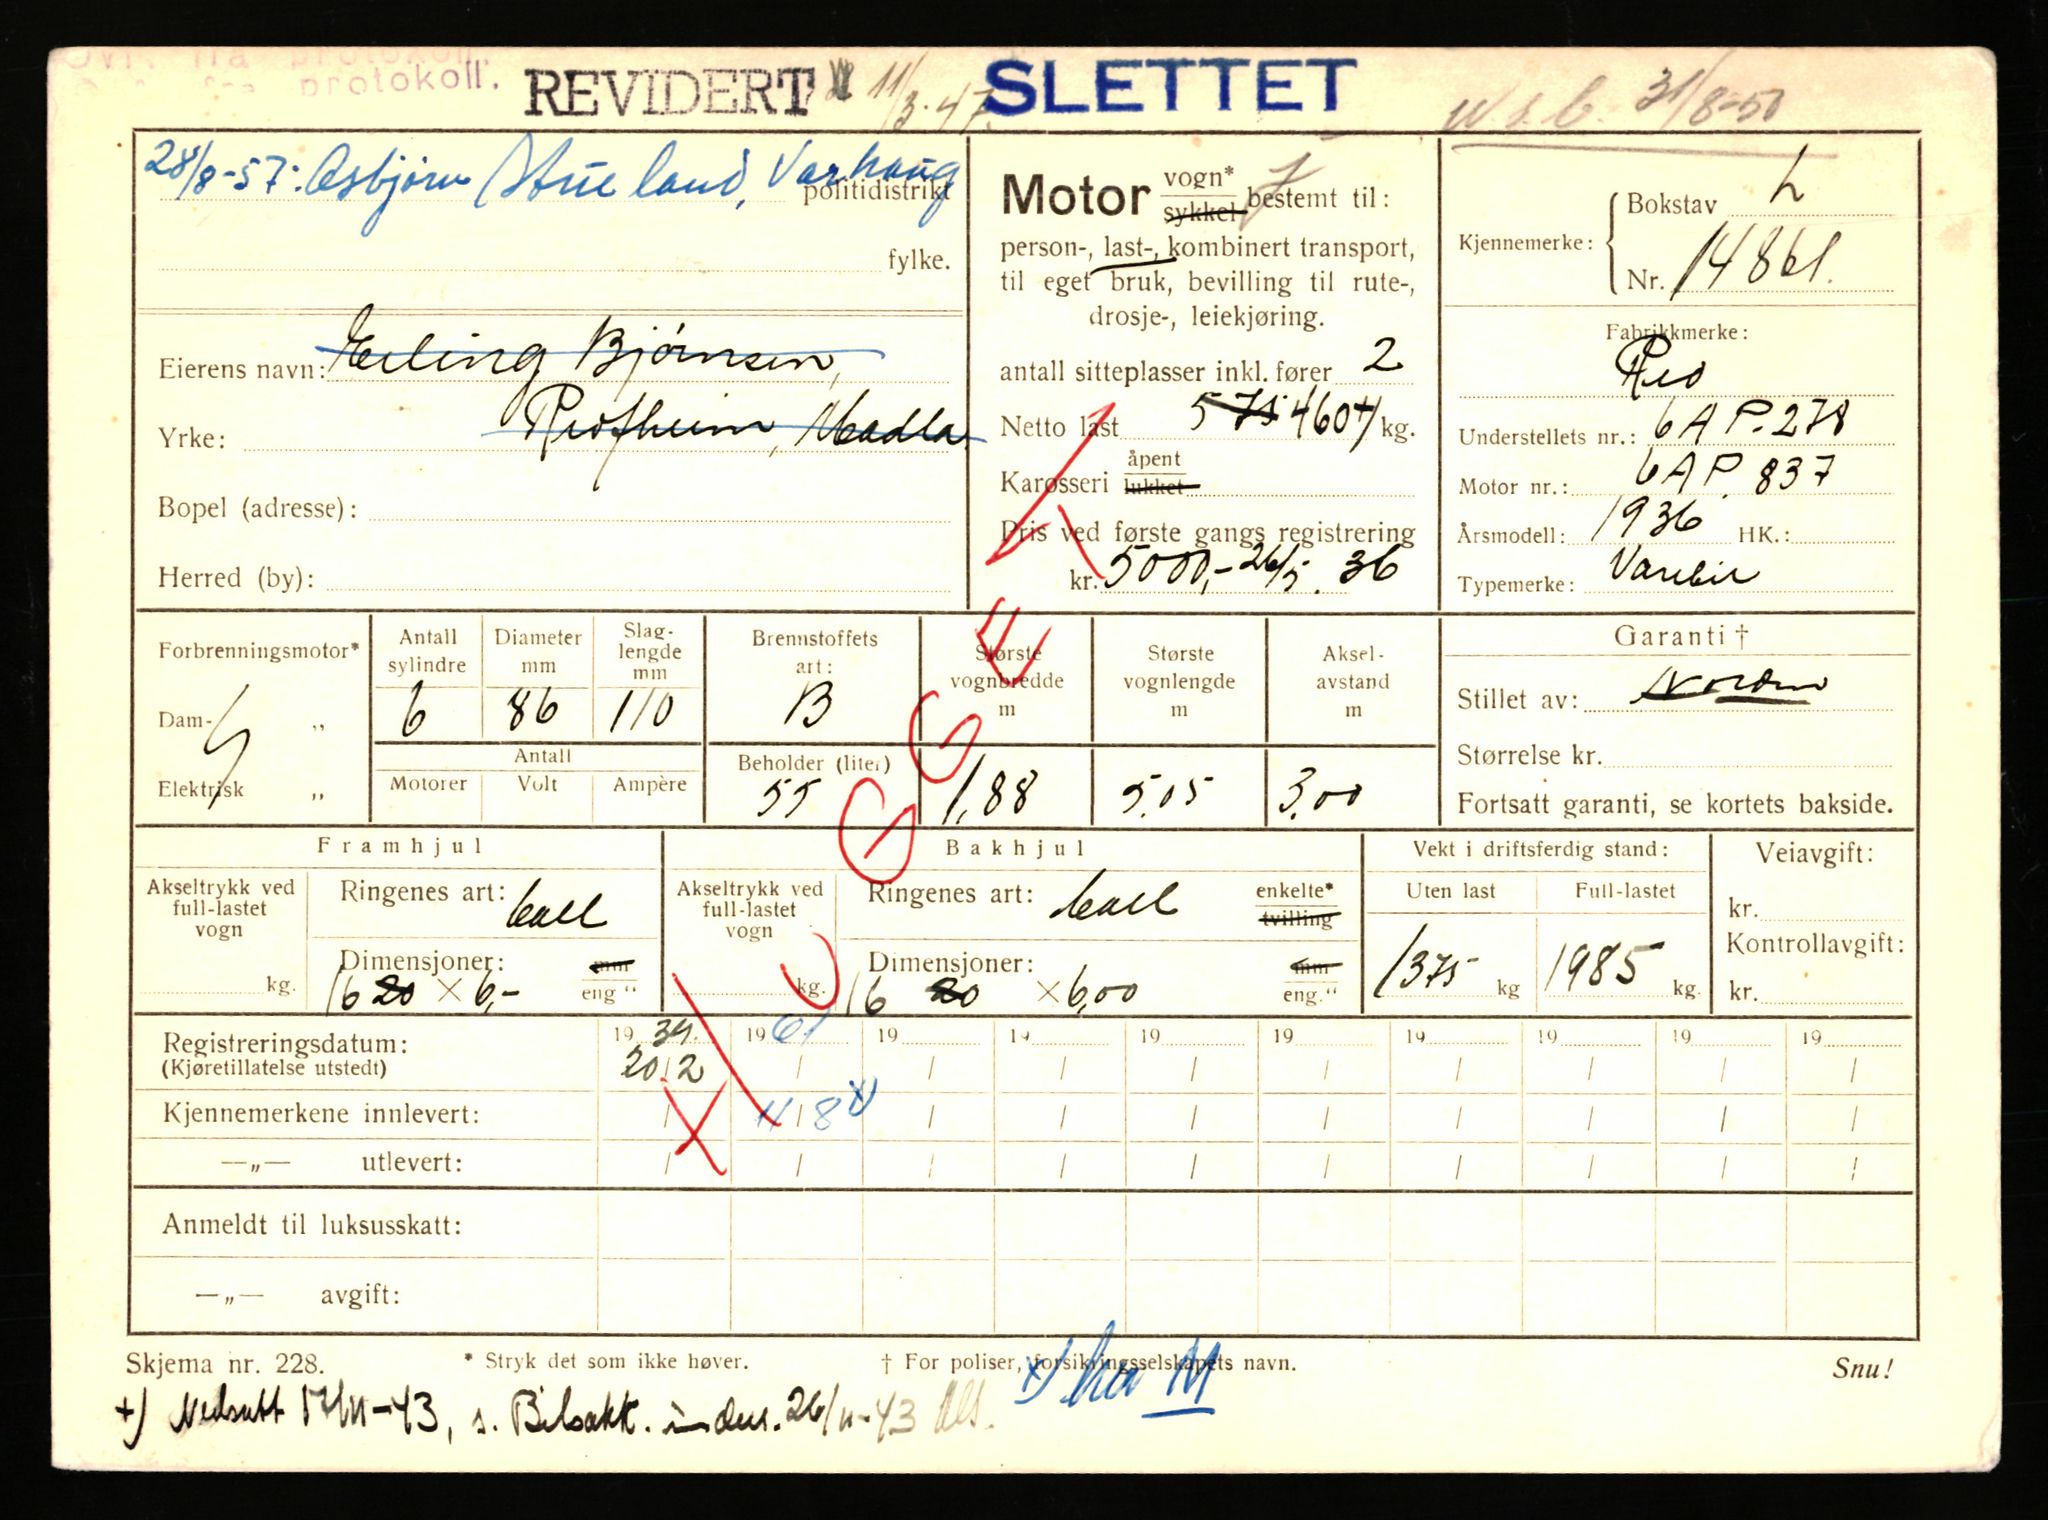 Ovf. fra protokoll.
fra protokoll.
REVIDERT 11/3-47. SLETTET 31/8-50
28/8-57: Asbjørn Stueland, Varhaug politidistrikt
fylke.
Eierens navn: Erling Bjørnsen,
Yrke: Madla,
Bopel (adresse):
Herred (by):
Motor vogn* sykkel bestemt til:
person-, last-, kombinert transport,
til eget bruk, bevilling til rute-,
drosje-, leiekjøring.
antall sitteplasser inkl. fører 2
Netto last 575 460 +) kg.
Karosseri åpent lukket
Pris ved første gangs registrering
kr. 5000,- 26/5. 36
Kjennemerke: Bokstav L
Nr. 14861.
Fabrikkmerke:
Reo
Understellets nr.: 6AP.278
Motor nr.: 6AP. 837
Årsmodell: 1936 HK.:
Typemerke: Varebil
Forbrenningsmotor*
Dam- „
Elektrisk „
Antall sylindre 6
Diameter mm 86
Slaglengde mm 110
Antall
Motorer Volt Ampère
Brennstoffets art: B
Beholder (liter) 55
Største vognbredde m 1,88
Største vognlengde m 5,05
Akselavstand m 3,00
Garanti †
Stillet av: Norden
Størrelse kr.
Fortsatt garanti, se kortets bakside.
Framhjul
Akseltrykk ved full-lastet vogn kg.
Ringenes art: ball
Dimensjoner: 16 20 × 6,- mm eng "
Bakhjul
Akseltrykk ved full-lastet vogn kg.
Ringenes art: ball enkelte* tvilling
Dimensjoner: 16 20 × 6,00 mm eng."
Vekt i driftsferdig stand:
Uten last Full-lastet
1375 kg 1985 kg.
Veiavgift:
kr.
Kontrollavgift:
kr.
Registreringsdatum: 19 39. 19 61 19 19 19 19 19 19 19 19
(Kjøretillatelse utstedt) 20/2 / / / / / / / / /
Kjennemerkene innlevert: / 11/8 x) / / / / / / / /
—„— utlevert: / / / / / / / / / /
Anmeldt til luksusskatt:
—„— avgift:
Skjema nr. 228. * Stryk det som ikke høver. † For poliser, forsikringsselskapets navn. Snu!
+) Nedsatt 17/11-43, s. Bilsakk. 26/11-43
x) M